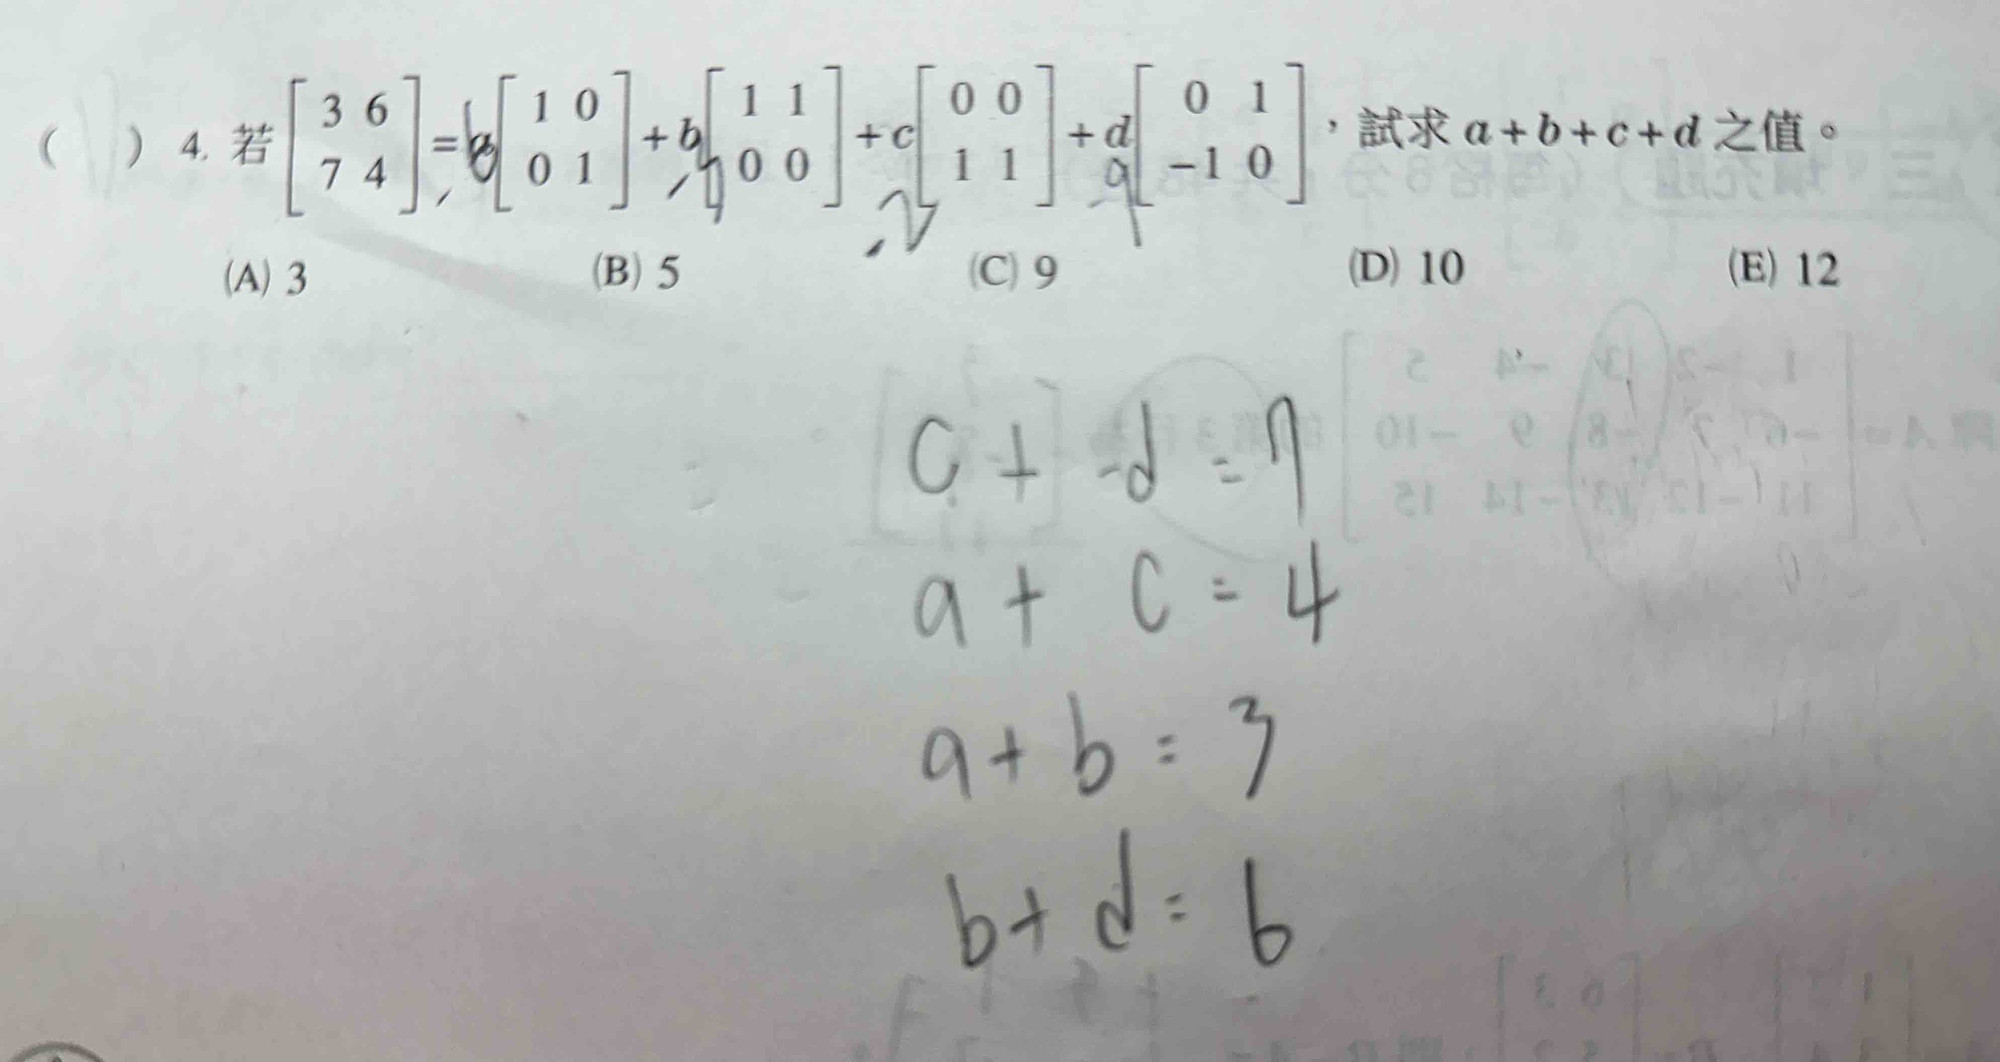 ( ) 4. 若 [3 6 7 4] = a [1 0 0 1] + b [1 1 0 0] + c [0 0 1 1] + d [0 1 -1 0] ，試求 a+b+c+d 之值。
(A) 3 (B) 5 (C) 9 (D) 10 (E) 12
c + -d = 7
a + c = 4
a + b = 3
b + d = 6